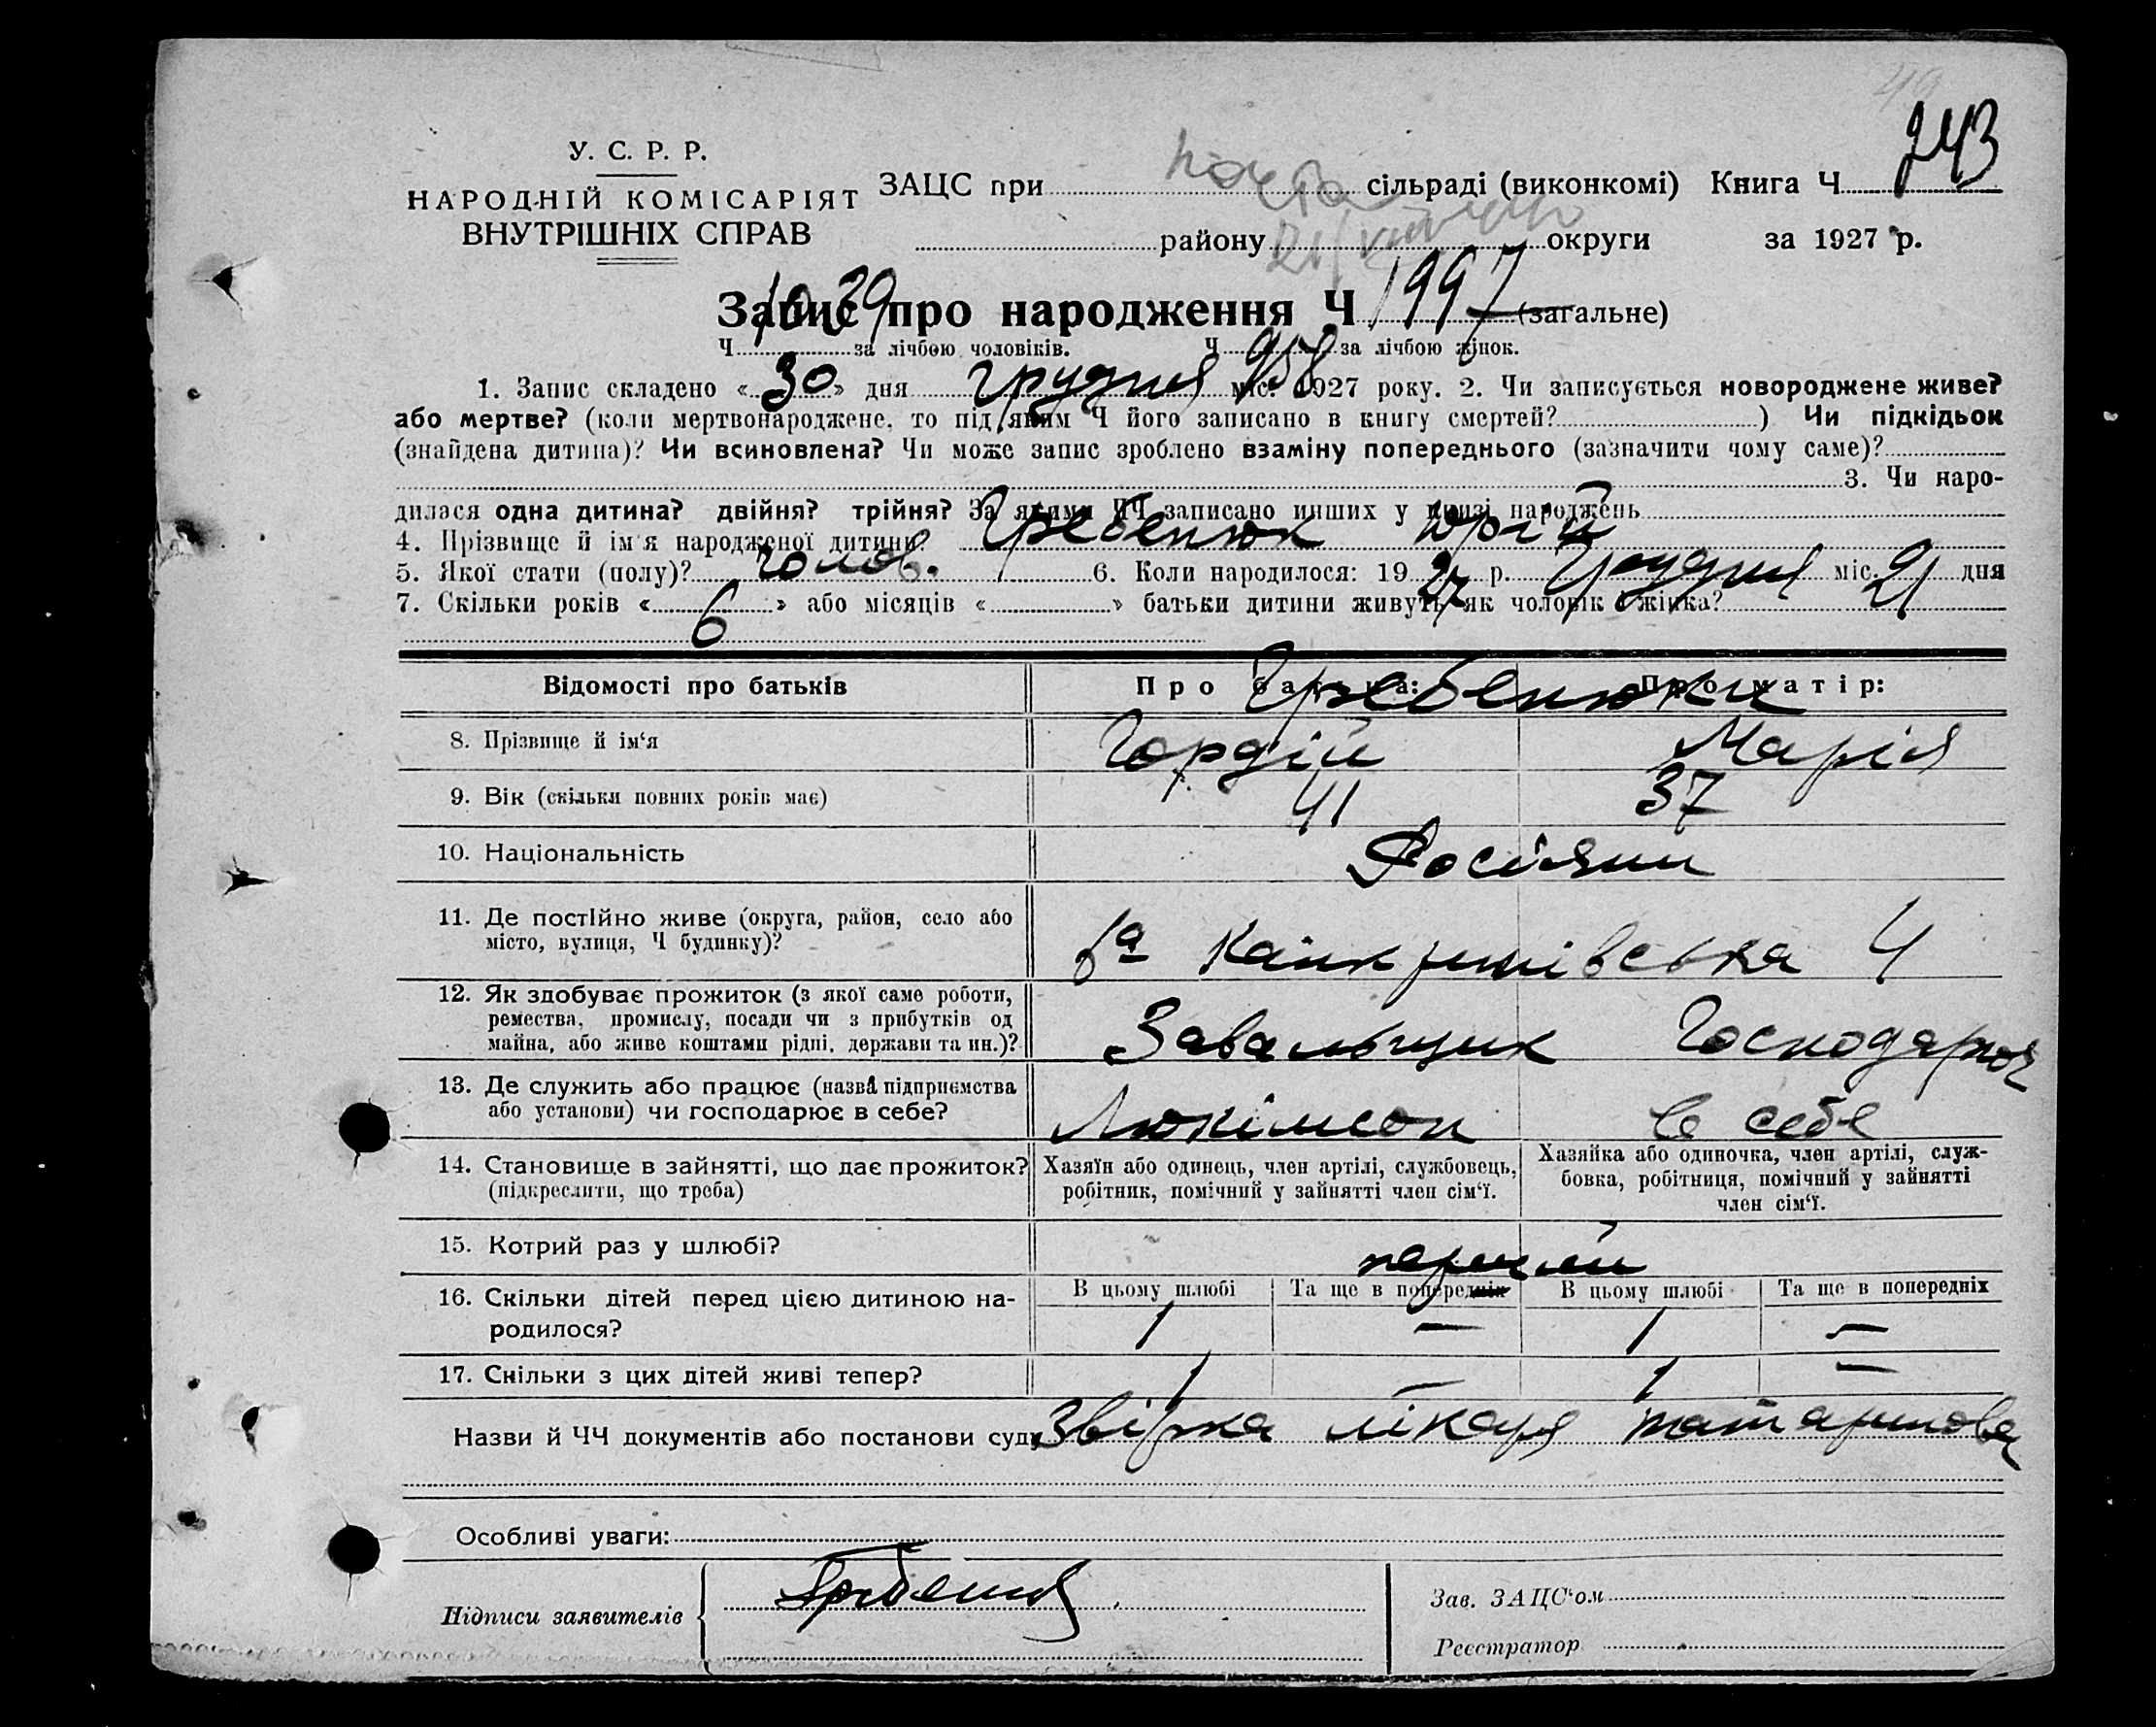 243
У. С. Р. Р.
НАРОДНІЙ КОМІСАРІЯТ
ВНУТРІШНІХ СПРАВ
ЗАЦС при сільраді (виконкомі) Книга Ч
району округи за 1927 р.
Запис про народження Ч 1997 (загальне)
Ч 1039 за лічбою чоловіків. Ч 958 за лічбою жінок.
1. Запис складено « 30 » дня грудня міс. 1927 року. 2. Чи записується новороджене живе?
або мертве? (коли мертвонароджене, то під яким Ч його записано в книгу смертей? ) Чи підкідьок
(знайдена дитина)? Чи всиновлена? Чи може запис зроблено взаміну попереднього (зазначити чому саме)?
3. Чи наро-
дилася одна дитина? двійня? трійня? За якими ЧЧ записано инших у книзі народжень
4. Прізвище й ім'я народженої дитини? Гребенюк Юрій
5. Якої стати (полу)? чолов. 6. Коли народилося: 19 27 р. Грудня міс. 21 дня
7. Скільки років « 6 » або місяців « » батьки дитини живуть як чоловік і жінка?
Відомості про батьків Про батька: Про матір:
Гребенюки
8. Прізвище й ім'я Гордій Марія
9. Вік (скільки повних років має) 41 37
10. Національність Росіяни
11. Де постійно живе (округа, район, село або
місто, вулиця, Ч будинку)? 4
12. Як здобуває прожиток (з якої саме роботи,
ремества, промислу, посади чи з прибутків од
майна, або живе коштами рідні, держави та ин.)? Завальщик Господарює
13. Де служить або працює (назва підприємства
або установи) чи господарює в себе? в себе
14. Становище в зайнятті, що дає прожиток?
(підкреслити, що треба)
Хазяїн або одинець, член артілі, службовець,
робітник, помічний у зайнятті член сім'ї.
Хазяйка або одиночка, член артілі, служ-
бовка, робітниця, помічний у зайнятті
член сім'ї.
15. Котрий раз у шлюбі? перший
16. Скільки дітей перед цією дитиною на-
родилося?
В цьому шлюбі Та ще в попередніх В цьому шлюбі Та ще в попередніх
1 — 1 —
17. Скільки з цих дітей живі тепер? 1 — 1 —
Назви й ЧЧ документів або постанови суду лікаря
Особливі уваги:
Підписи заявителів
Зав. ЗАЦС'ом
Реєстратор